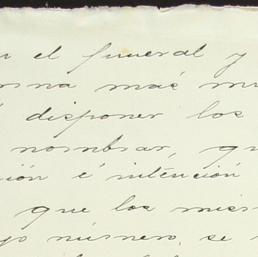 el funeral y
na más
disponer los
nombrar,
ción é intención
que los mis
jo número, se